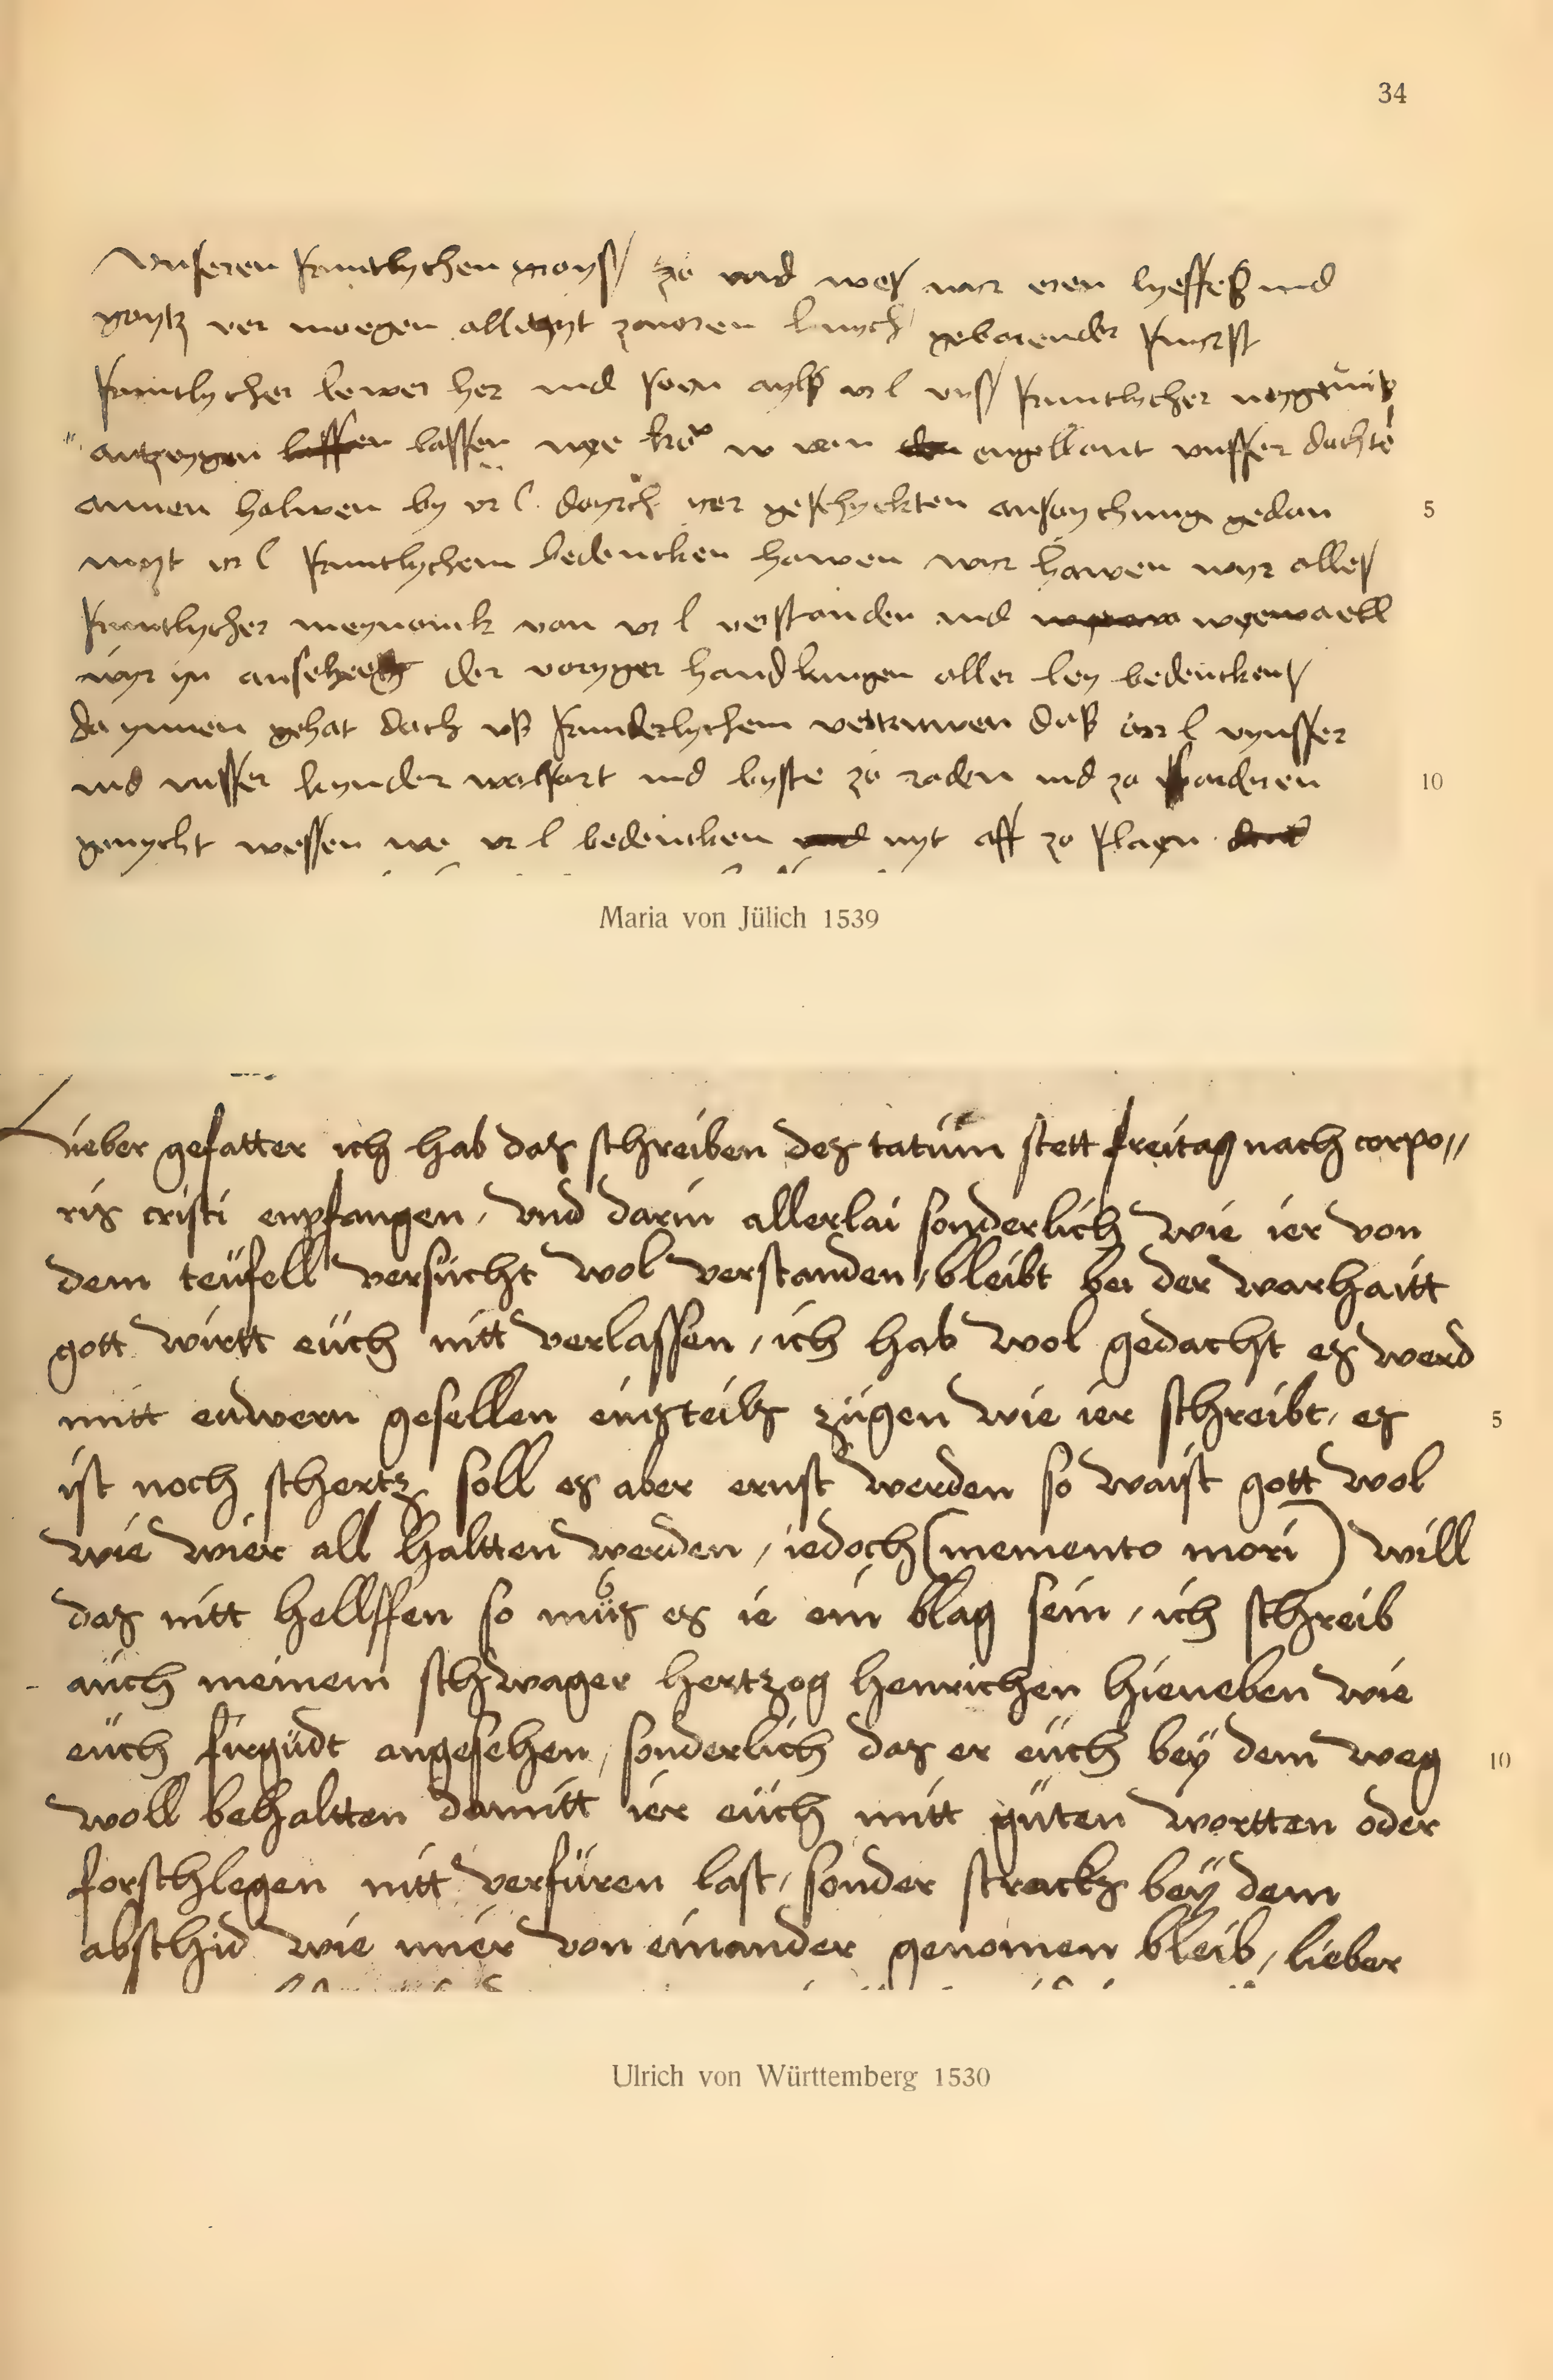 34
Unseren fruntlychen groyß zo und wes wir eren lyeffes und
gontz ver moegen alletzyt zauoren hoych geborender furst
fruntlycher lewer her und soen ayls ur l uns fruntlycher neygunk
antzeygen lassen wye ko w van engellant unsser dochter
annen halwen by ur l. doyrch yer geschyckten ansoychung gedan
myt ur l fruntlychem bedencken hawen wir hawen wyr alles
fruntlycher meynonk van ur l verstanden und wyewaell
wyr yn anseheng der voryger handlungen aller ley bedencken
da ynnen gehat doch uß frunderlychem vertruwen das ur l vynsser
und unsser kynder wolfart und byste zo raden und zo forderen
genycht wessen we ur l bedencken nyt aff zo slagn
5
10
Maria von Jülich 1539
Lieber gefatter ich hab das schreiben des tatum stett freitag nach corpo//
ris cristi enpfangen / vnd darin allerlai sonderlich wie ier von
dem teüfell versücht wol verstanden / bleibt bei der warhaitt
gott wirtt eüch nitt verlassen / ich hab wol gedacht es werd
mitt euwern gesellen einsteils zügen wie ier schreibt / es
ist noch schertz soll es aber ernst werden so waist gott wol
wie wier all haltten werden / iedoch (memento mori) will
das nitt hellffen so müs es ie ein blag sein / ich schreib
aüch meinem schwager hertzog henrichen hieneben wie
eüch firgüdt angesehen / sonderlich das er eüch beÿ dem weg
woll behaltten damitt ier eüch mitt güten wortten oder
forschlegen nitt verfüren last / sonder stracks beÿ dem
abschid wie mier von einander genomen bleib / lieber
5
10
Ulrich von Württemberg 1530